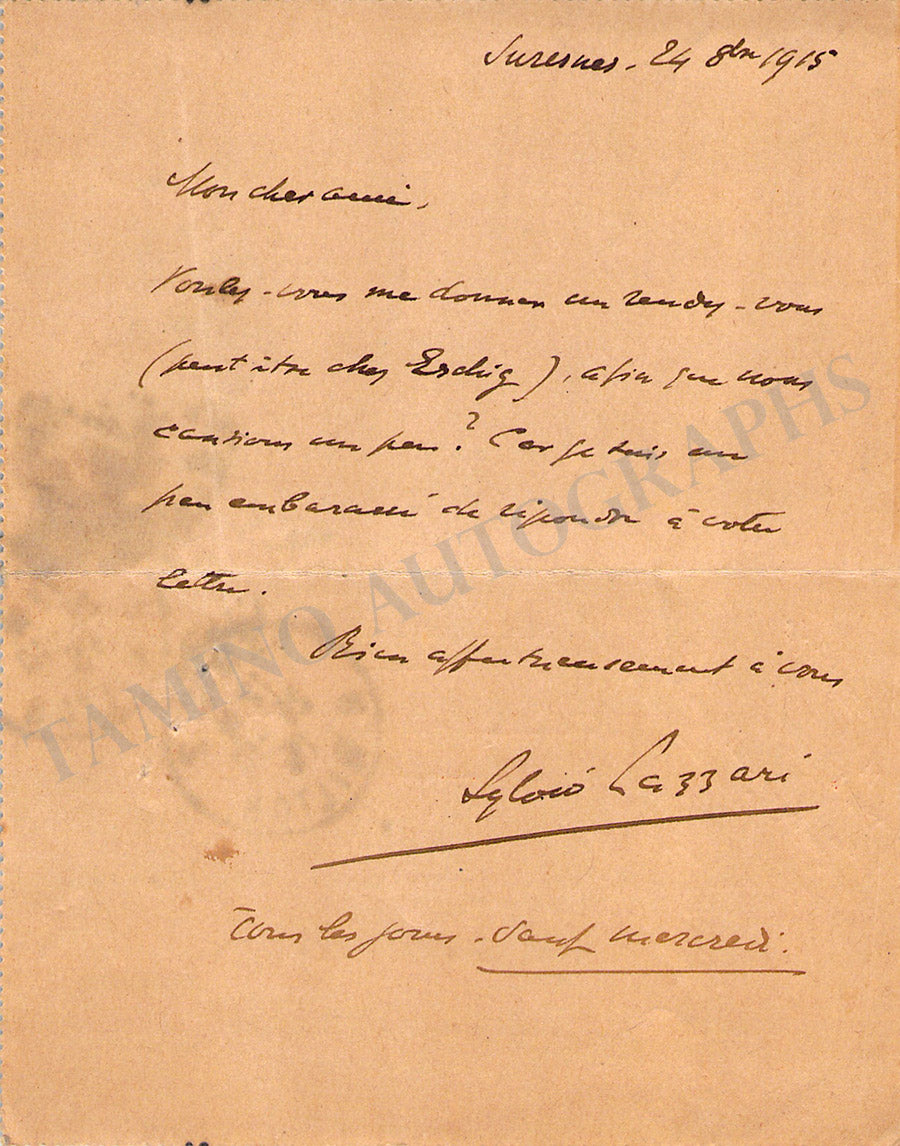 Suresnes - 24 8bre 1915
Mon cher ami,
Voulez-vous me donner un rendez-vous
(peut être chez Eschig), afin que nous
causions un peu? Car je suis un
peu embarassé de répondre à votre
lettre.
Bien affectueusement à vous
Sylvio Lazzari
Tous les jours - sauf mercredi.
TAMINO AUTOGRAPHS